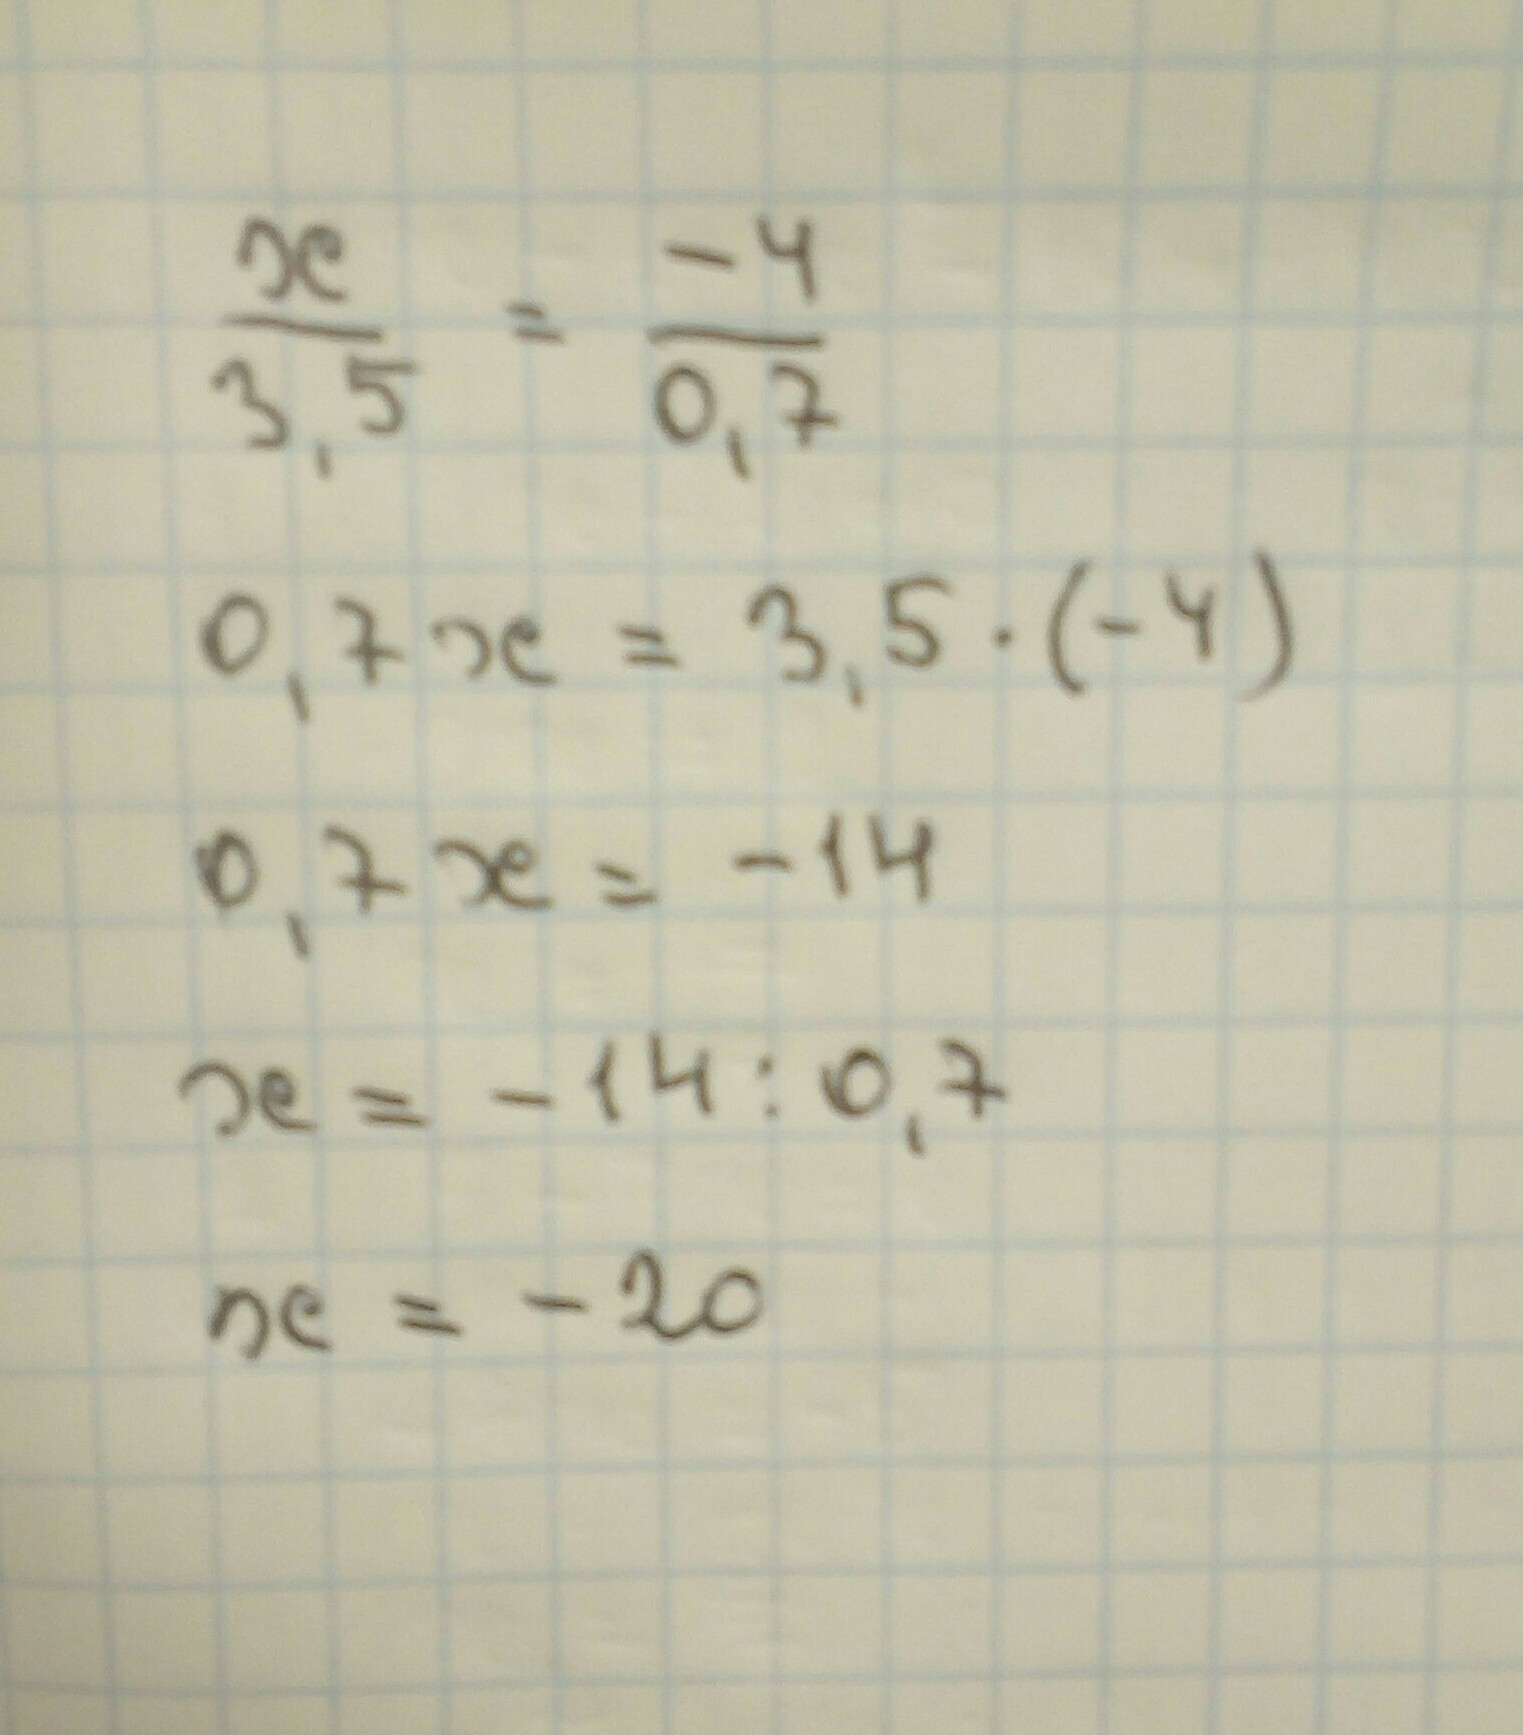 x/3,5 = -4/0,7
0,7x = 3,5·(-4)
0,7x = -14
x = -14:0,7
x = -20